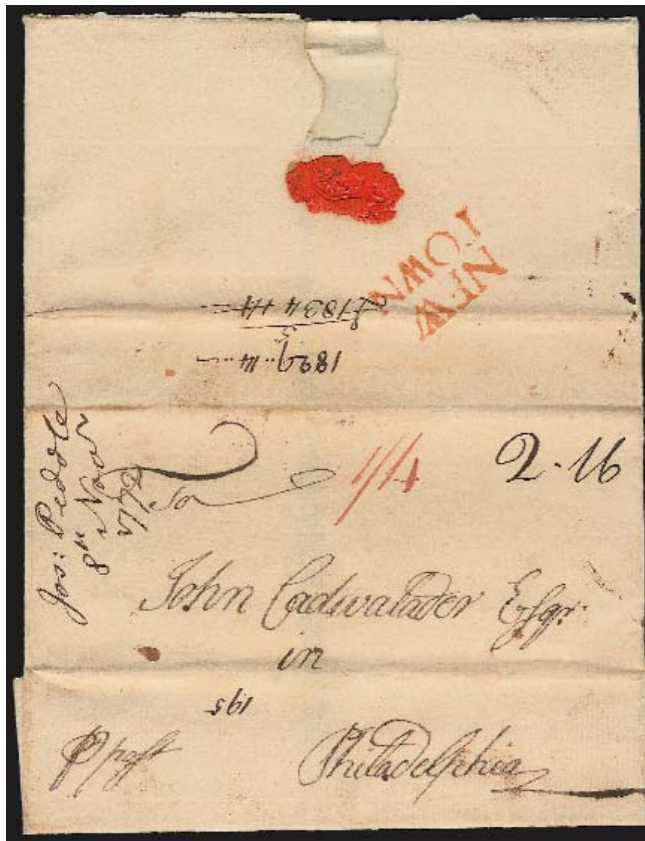 NEW
TOWN
£1834 14
5
1829..14..
Jos: Peddle
8th Novr
To
1/4
2.16
John Cadwalader Esqr.
in
195
P post
Philadelphia